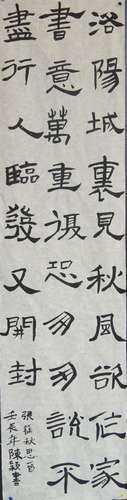 洛陽城裏見秋風欲作家
書意萬重復恐匆匆說不
盡行人臨發又開封
張籍秋思首
壬辰年陳穎書